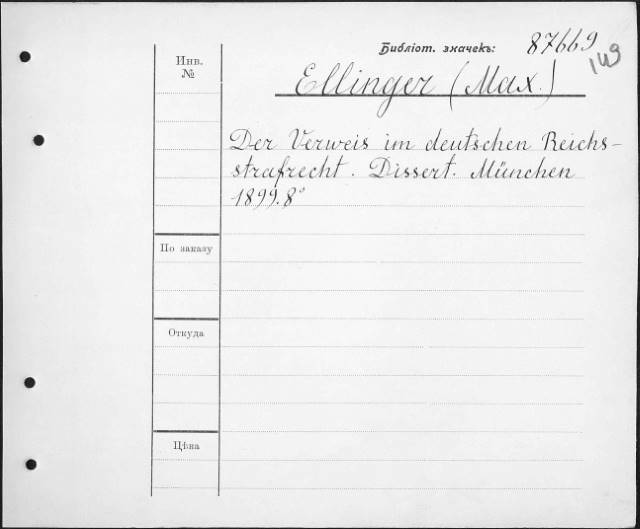 Библіот. значекъ: 87669
149
Инв.
№
Ellinger (Max.)
Der Verweis im deutschen Reichs-
strafrecht. Dissert. München
1899.8°
По заказу
Откуда
Цѣна